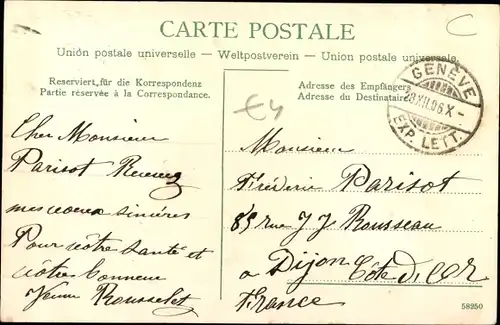 CARTE POSTALE
Unión postale universelle — Weltpostverein — Union postale universale.
Reserviert, für die Korrespondenz
Partie réservée à la Correspondance.
Adresse des Empfängers
Adresse du Destinataire
GENÈVE
29.VII.06.X-
EXP. LETT.
€4
C
Cher Monsieur
Parisot Recevez
mes voeux sincères
Pour vôtre Santé et
vôtre bonneur
Rousselet
Monsieur
Fréderic Parisot
85 rue J J Rousseau
a Dijon Côte d'Or
France
58250